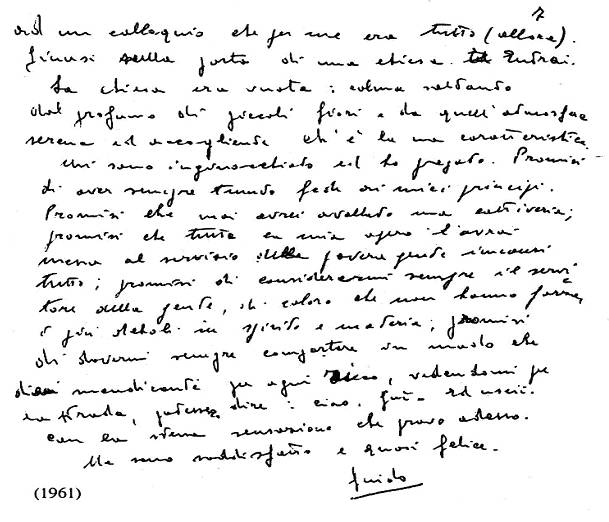 7
ad un colloquio che per me era tutto (allora).
Giunsi sulla porta di una chiesa. Entrai.
La chiesa era vuota: colma soltanto
dal profumo di piccoli fiori e da quell'atmosfera
serena ed accogliente ch'è la sua caratteristica.
Mi sono inginocchiato ed ho pregato. Promisi
di aver sempre tenuto fede ai miei principi.
Promisi che mai avrei avallato una cattiveria;
promisi che tutta la mia opera l'avrei
messa al servizio della povera gente innanzi
tutto; promisi di considerarmi sempre il servi
tore della gente, di coloro che non hanno forza
i più deboli in spirito e materia; promisi
di dovermi sempre comportare in modo che
dieci mendicanti per ogni ricco, vedendomi per
la strada, potesse dire: ciao. Ed uscii.
con la stessa sensazione che provo adesso.
Ma sono soddisfatto e quasi felice.
Guido
(1961)